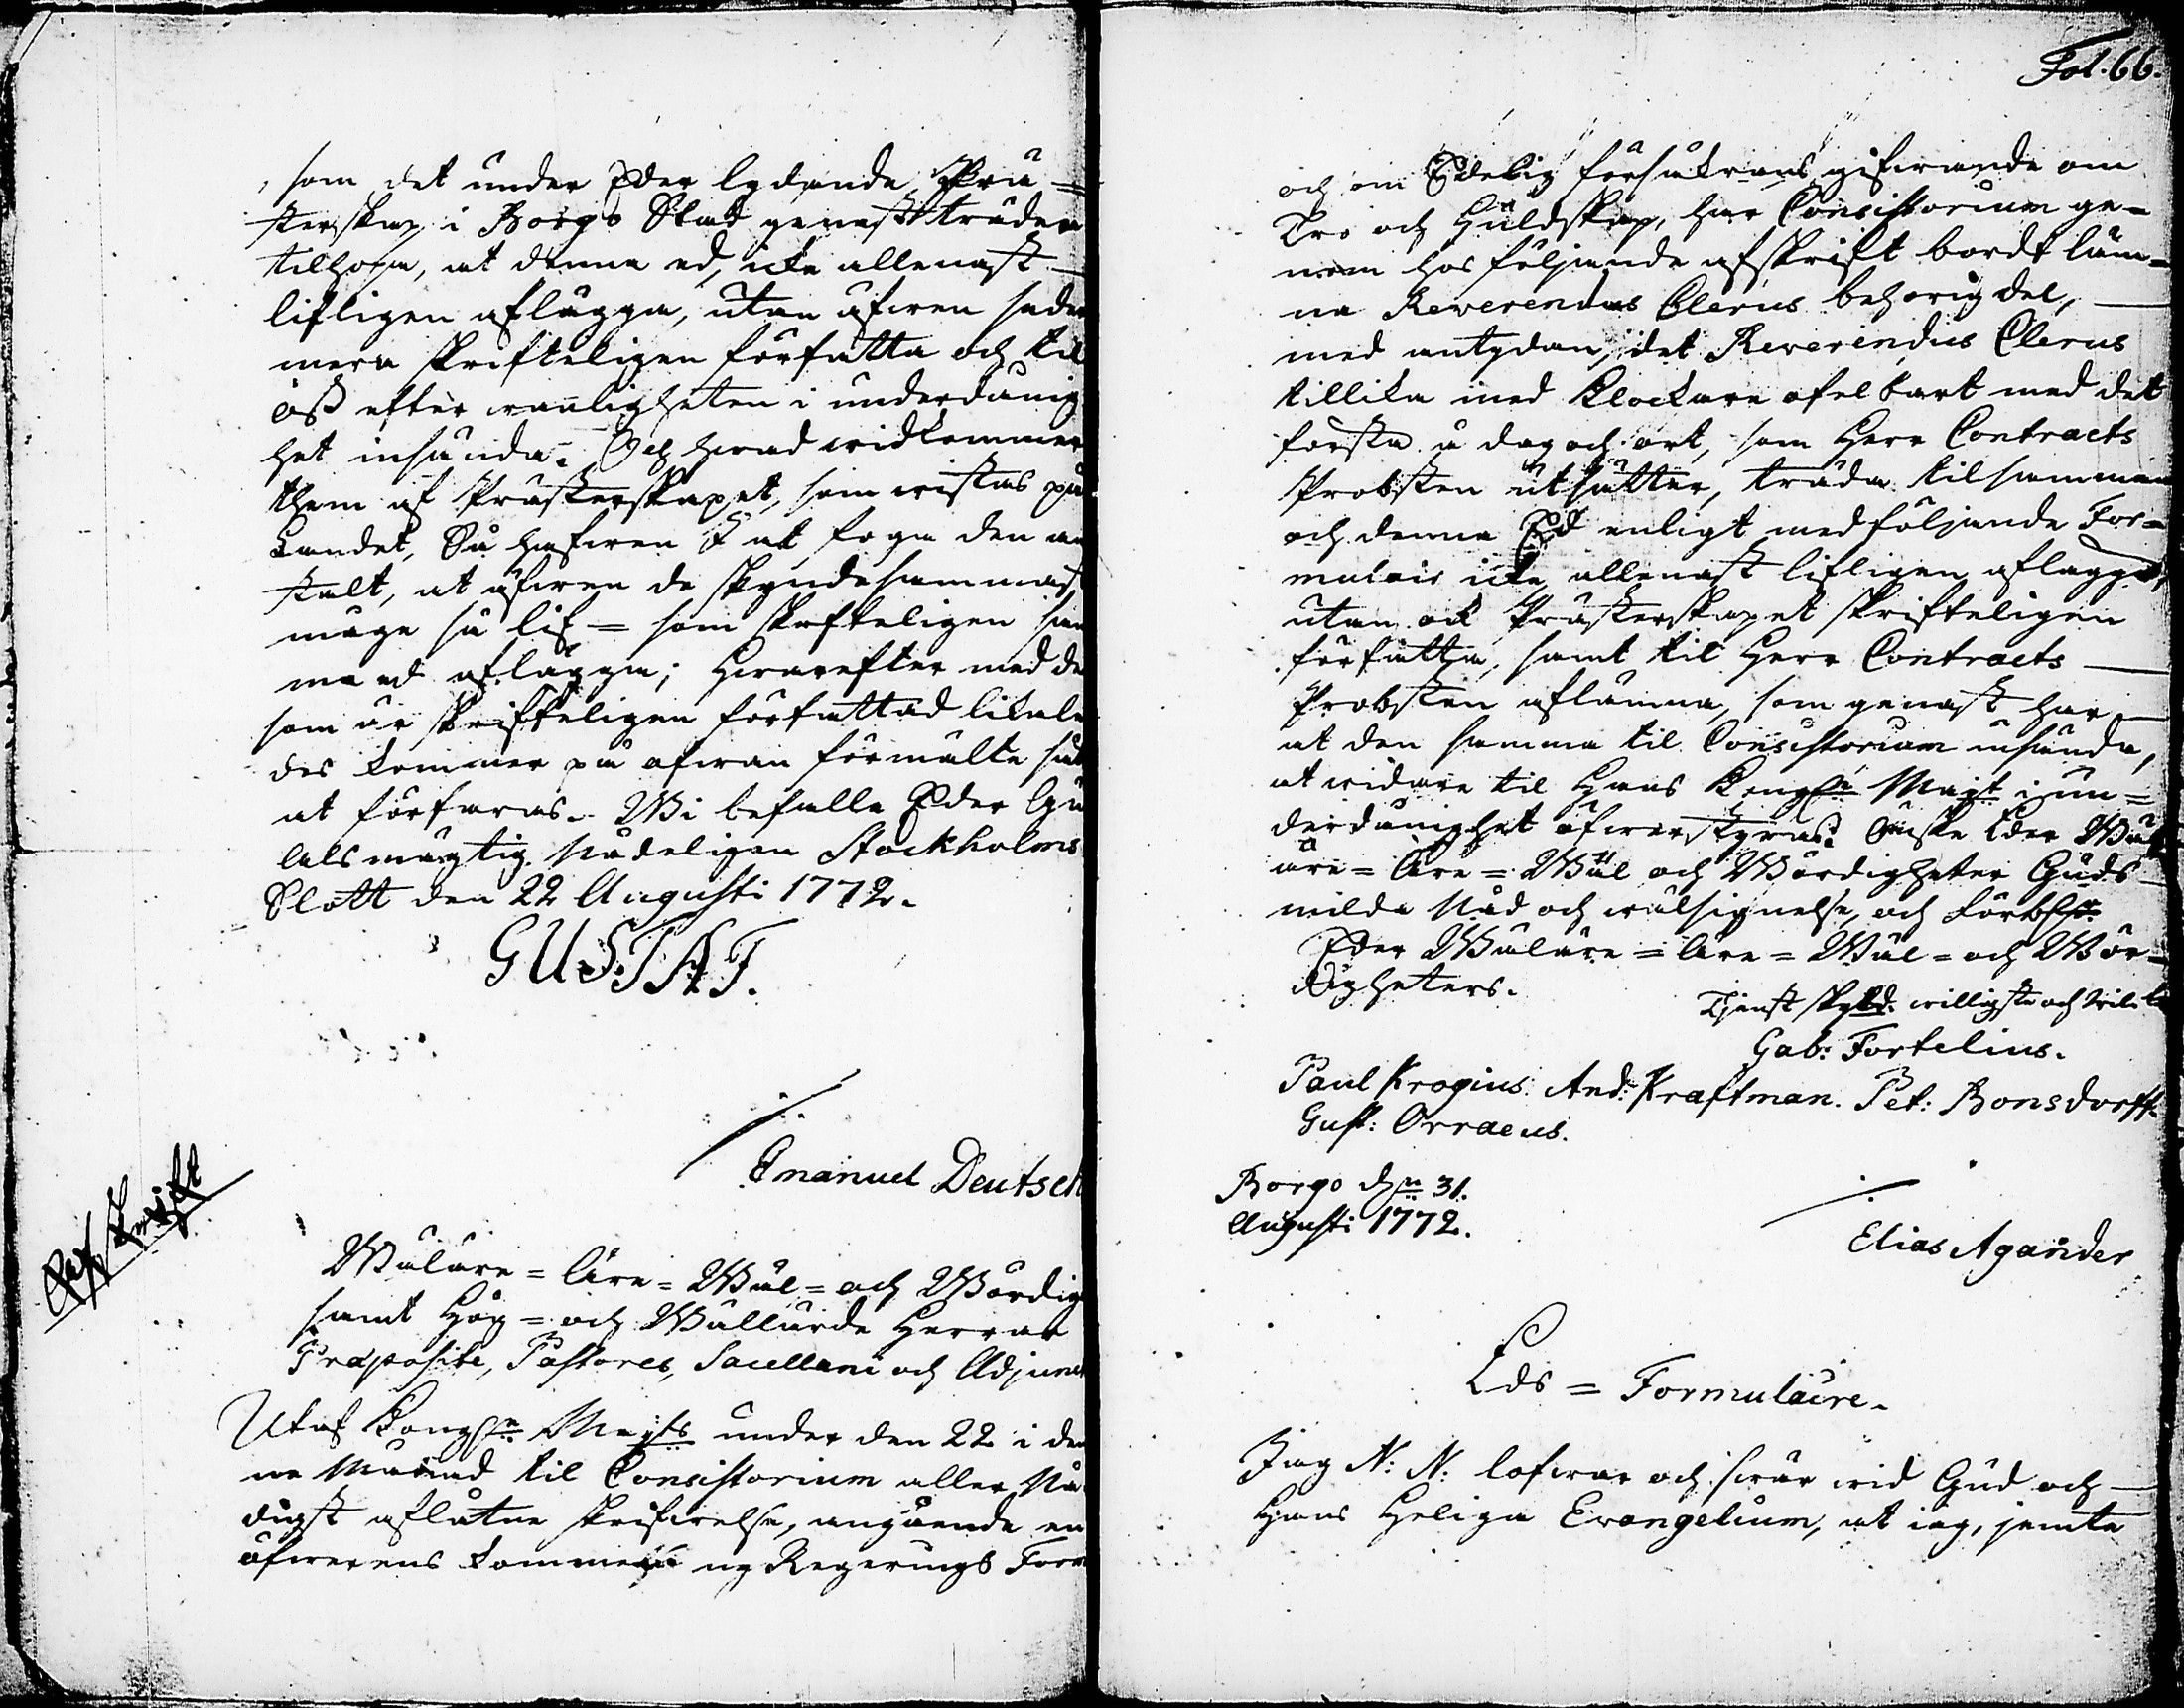 som det under Eder lydande Prä=
sterskap i Borgo Stad genast träder
tilhopa, at denna ed, icke allenast
lifligen aflägga, utan äfwen seder
mera skrifteligen författa och til
oss efter wanligheten i underdånig
het insända. Och hwad widkommer
them af Prästerskapet, som wistas på
Landet, Så hafwen I at foga den an
stalt, at äfwen de skyndesammast
måge så lif= som skrifteligen sam
ma ed aflägga; Hwarefter med de
som är skrifteligen författad likale
des kommer på ofwan förmälte sät
at förfaras. Wi befalle Eder Gu
Alsmägtig Nådeligen Stockholms
Slott den 22 Augusti 1772.
GUSTAF.
Emanuel Deutsch
Afskrift
Wäläre= Äre= Wäl= och Wördig
samt Hög= och Wällärde Herrar
Præpositi, Pastores, Sacellani och Adjunct
Utaf Kongl. Maijts under den 22 i den
na Månad til Consistorium aller Nå
digst aflåtne skrifwelse, angående en
öfwerens kommen ny Regerings Form
Fol. 66.
och om Edelig försäkrans gifwande om
Tro och Huldskap, har Consistorium ge=
nom hos följande afskrift bordt läm=
na Reverendus Clerus behorig del,
med antydan, det Reverendus Clerus
tillika med Klockare ofelbart med det
forsta å dag och ort, som Herr Contracts
Probsten utsätter, träda tilsamman
och denna Ed enligt medföljande For=
mulair icke allenast lifligen aflägga,
utan ock Prästerskapet skrifteligen
författa, samt til Herr Contracts
Probsten aflämna, som genast har
at den samma til Consistorium insända,
at widare til Hans Kongl. Maijt i un=
derdånighet öfwerstyras. Önske Eder Wäl
äre= Äre= Wäl och Wördigheter Guds
milda Nåd och wälsignelse, och
Eder Wäläre= Äre= Wäl= och Wör=
digheters.
Tjenst skyld. willigste och
Gab: Fortelius.
Paul Krogius. And: Kraftman. Pet: Bonsdorff.
Gust: Orraeus.
Borgo den 31.
Augusti 1772.
Elias Agander
Eds= Formulaire.
Jag N: N: lofwar och swär wid Gud och
Hans Heliga Evangelium, at iag, jemte